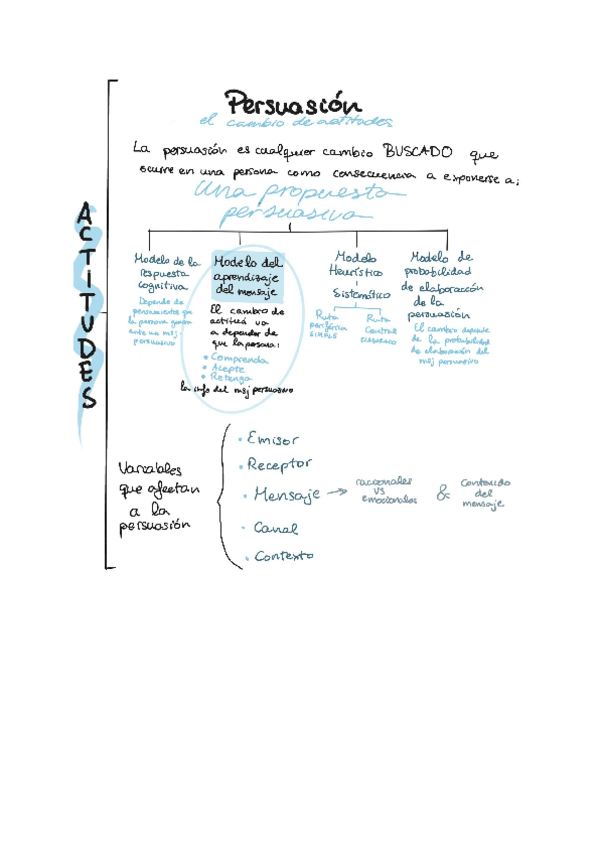 ACTITUDES
Persuasión
el cambio de actitudes
La persuasión es cualquier cambio BUSCADO que
ocurre en una persona como consecuencia a exponerse a:
una propuesta
persuasiva
Modelo de la
respuesta
cognitiva
Depende de
pensamientos que
la persona genera
ante un msj
persuasivo
Modelo del
aprendizaje
del mensaje
El cambio de
actitud va
a depender de
que la persona:
• Comprenda
• Acepte
• Retenga
la info del msj persuasivo
Modelo
Heurístico
Sistemático
Ruta
periférica
SIMPLE
Ruta
Central
Modelo de
probabilidad
de elaboración
de la
persuasión
El cambio depende
de la probabilidad
de elaboración del
msj persuasivo
Variables
que afectan
a la
persuasión
• Emisor
• Receptor
• Mensaje → racionales
vs
emocionales
& Contenido
del
mensaje
• Canal
• Contexto